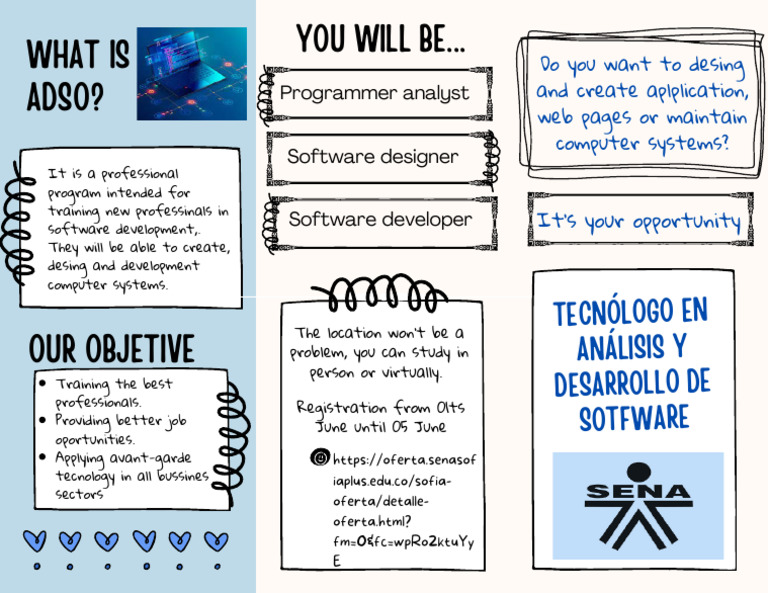 WHAT IS
ADSO?
It is a professional
program intended for
training new professinals in
software development,.
They will be able to create,
desing and development
computer systems.
OUR OBJETIVE
• Training the best
professionals.
• Providing better job
oportunities.
• Applying avant-garde
tecnology in all bussines
sectors
YOU WILL BE...
Programmer analyst
Software designer
Software developer
The location won't be a
problem, you can study in
person or virtually.
Registration from 01ts
June until 05 June
https://oferta.senasof
iaplus.edu.co/sofia-
oferta/detalle-
oferta.html?
fm=0&fc=wpRo2ktuYy
E
Do you want to desing
and create aplplication,
web pages or maintain
computer systems?
It's your opportunity
TECNÓLOGO EN
ANÁLISIS Y
DESARROLLO DE
SOTFWARE
SENA